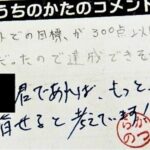 うちのかたのコメント
トでの目標が300点以
だったので達成できそ
君であれば、もっと
指せると考えています!